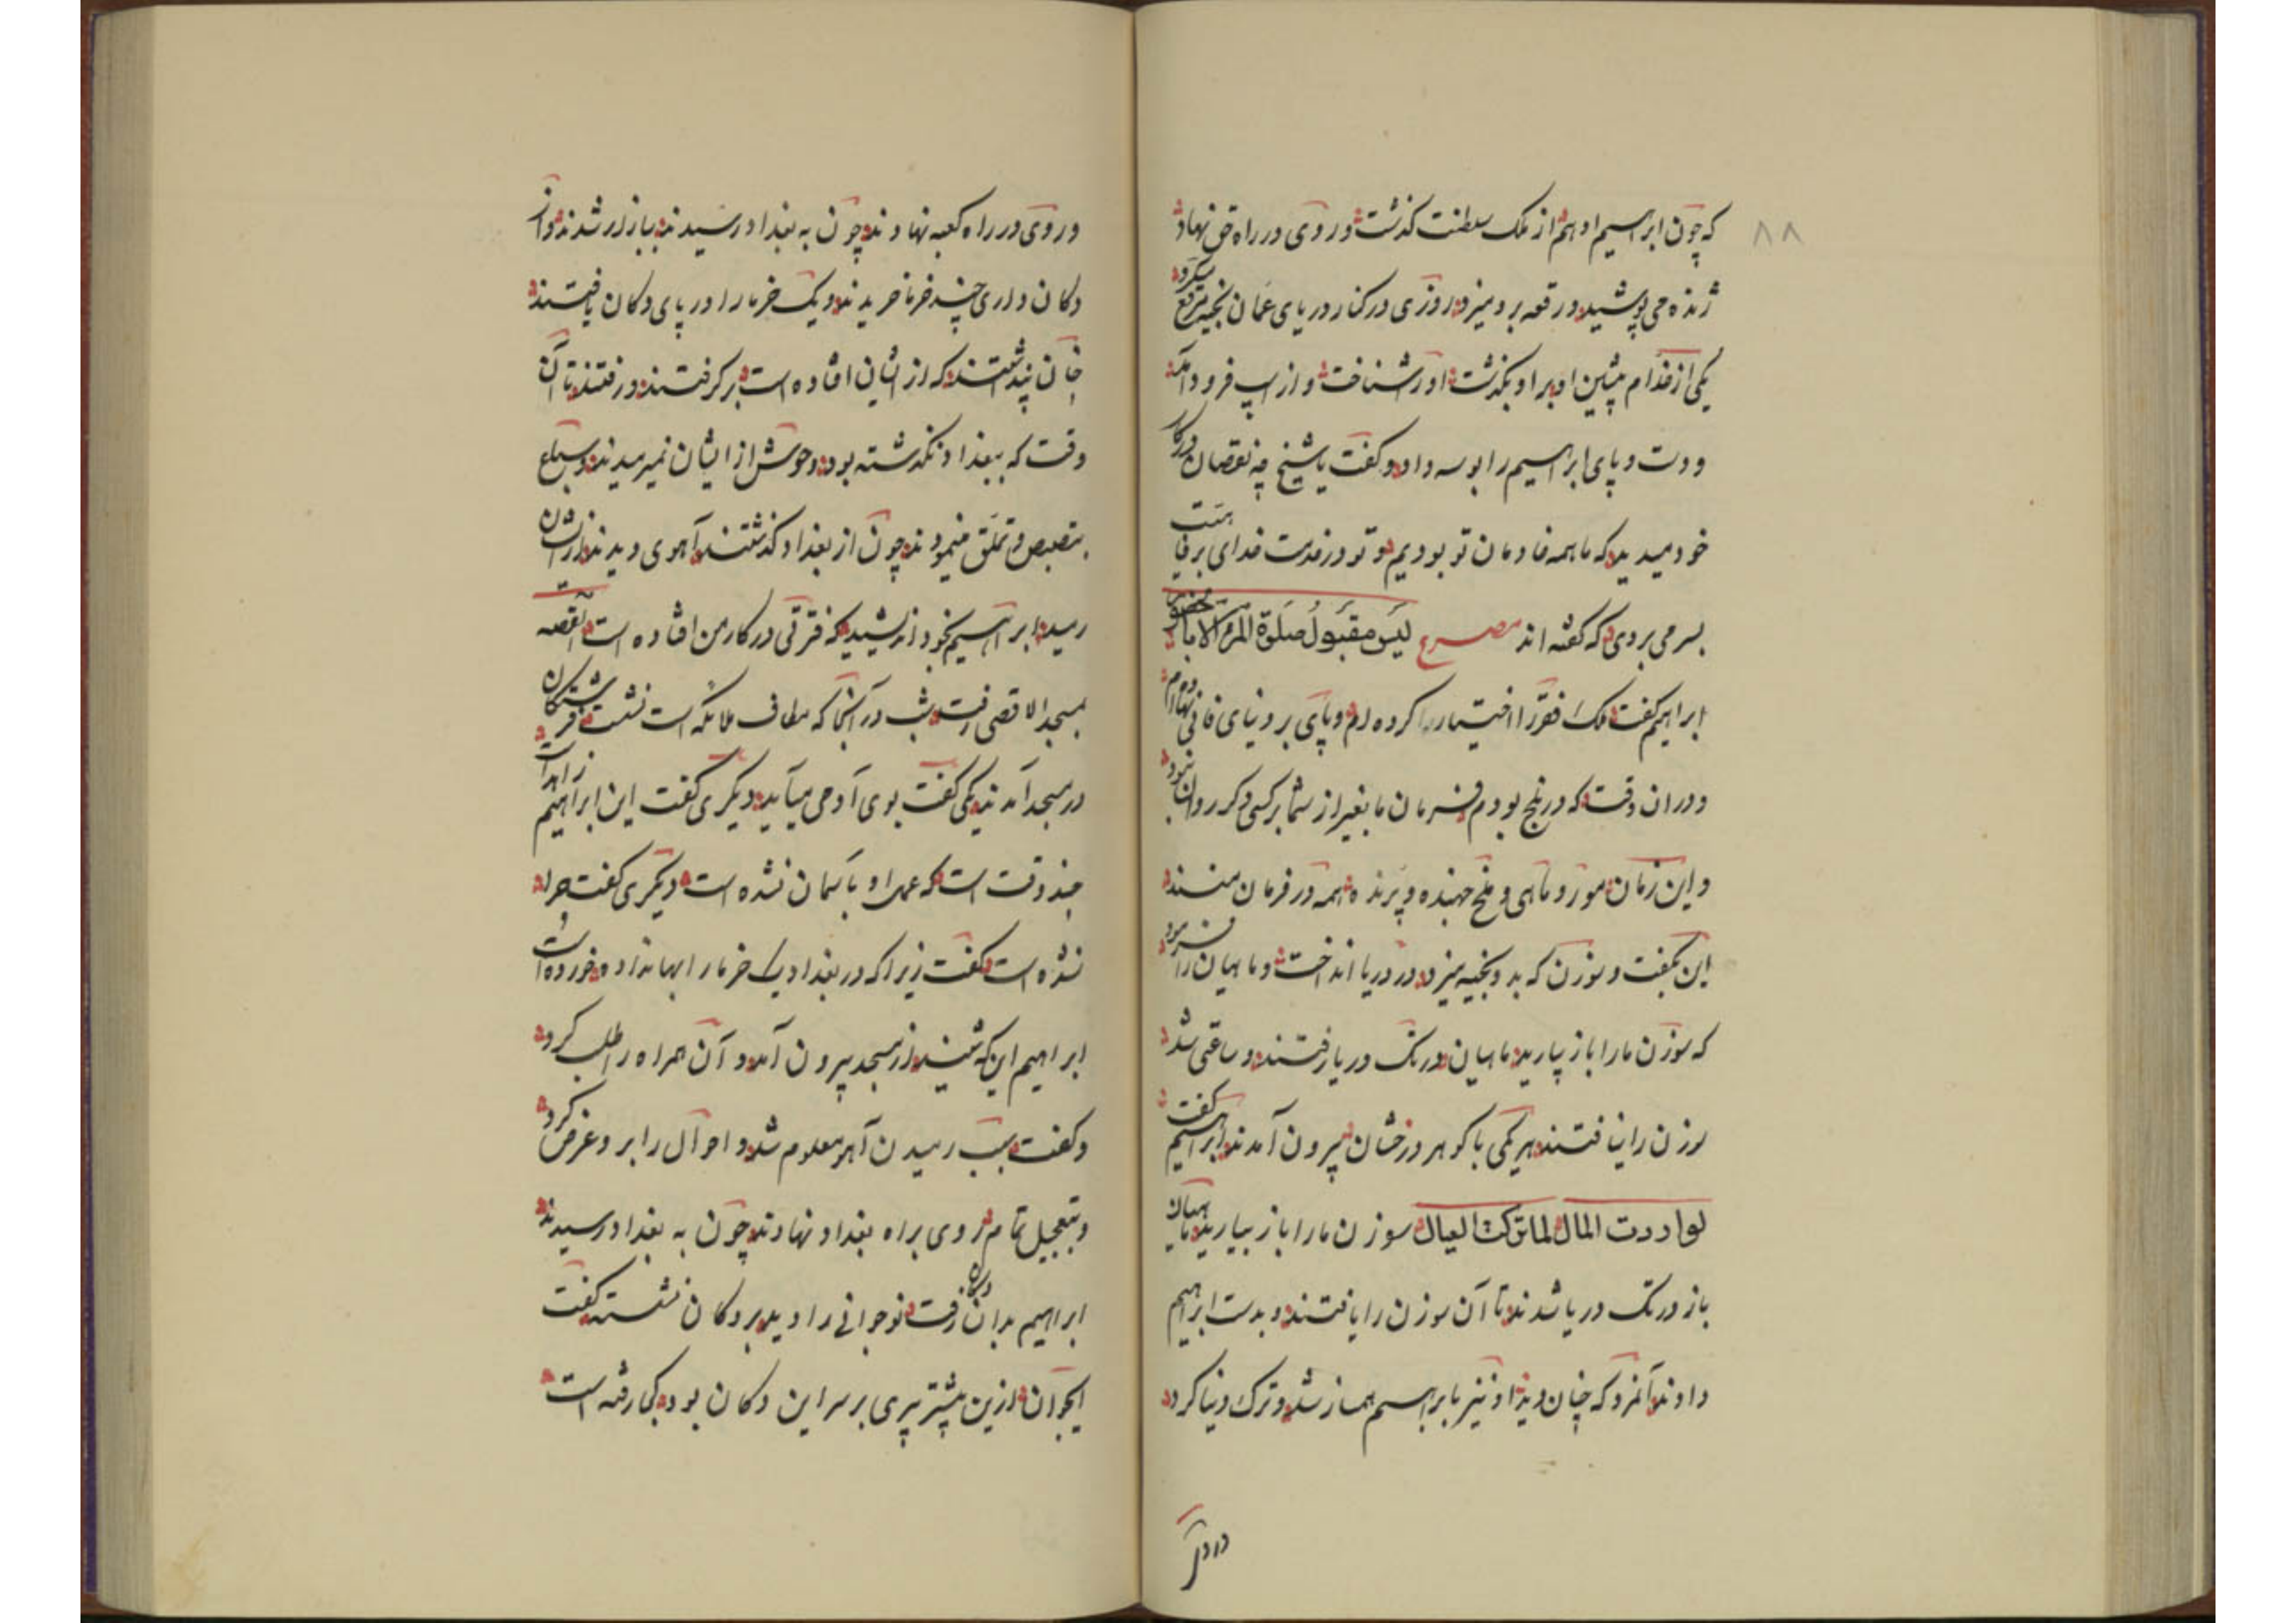 ۸۸
که چون ابراهیم ادهم از ملک سلطنت کذشت و روی در راه حق نهاد
ژنده می پوشید و رقعه برو میزد روزی در کنار دریای عمان بخیه بر مرقع میکرد
یکی از خدام پیشین او بر او بگذشت او را شناخت و از اسپ فرود آمد
و دست و پای ابراهیم را بوسه داد و کفت یا شیخ چه نقصان در کار
خود میدیدی که ما همه خادمان تو بودیم و تو در خدمت خدای برفاهیت
بسر می بردی که کفته اند مصرع لیس مقبول صلوة المرء الا بالحضور
ابراهیم کفت ملک فقر را اختیار کرده ام و پای بر دنیای فانی نهاده ام
و در ان وقت که در بلخ بودم فرمان ما بغیر از شما بر کسی دکر روان نبود
و این زمان مور و ماهی و ملخ جهنده و پرنده همه در فرمان منند
این بکفت و سوزن که بدو بخیه میزد در دریا انداخت و ماهیان را فرمود
که سوزن ما را باز بیارید ماهیان در تک دریا رفتند و ساعتی شد
سوزن را نیافتند هر یکی با کوهر درخشان بیرون آمدند ابراهیم کفت
لو اردت المال لما ترکت العیال سوزن ما را باز بیارید ماهیان
باز در تک دریا شدند تا آن سوزن را یافتند و بدست ابراهیم
دادند آنمرد که چنان دید او نیز با ابراهیم همراز شد و ترک دنیا کرد
و روی در راه کعبه نهادند چون به بغداد رسیدند ببازار شدند و از
دکان داری چند خرما خریدند و یک خرما را در پای دکان یافتند
چنان پنداشتند که از ایشان افتاده است بر کرفتند و رفتند تا آن
وقت که ببغداد نکذشته بود وحوش از ایشان نمیرمیدند و سباع
بتصبص و تملق مینمودند چون از بغداد کذشتند آهوی دیدند از ایشان
رمید ابراهیم بخود اندیشید که فترتی در کار من افتاده است القصه
بمسجد الاقصی رفت شب در آنجا که مطاف ملائکه است نشست فرشتکان
در مسجد آمدند یکی کفت بوی آدمی میآید دیکری کفت این ابراهیم زاهد است
چند وقت است که عمل او باسمان نشده است دیکری کفت چرا
نشده است کفت زیرا که در بغداد یک خرما را بها نداده خورده است
ابراهیم این که شنید از مسجد بیرون آمد و آن همراه را طلب کرد
و کفت سبب رمیدن آهو معلوم شد و احوال را برو عرض کرد
و بتعجیل تمام روی براه بغداد نهادند چون به بغداد رسیدند
ابراهیم بدان دکان رفت نوجوانی را دید بر دکان نشسته کفت
ایجوان ازین پیشتر پیری بر سر این دکان بود کجا رفته است